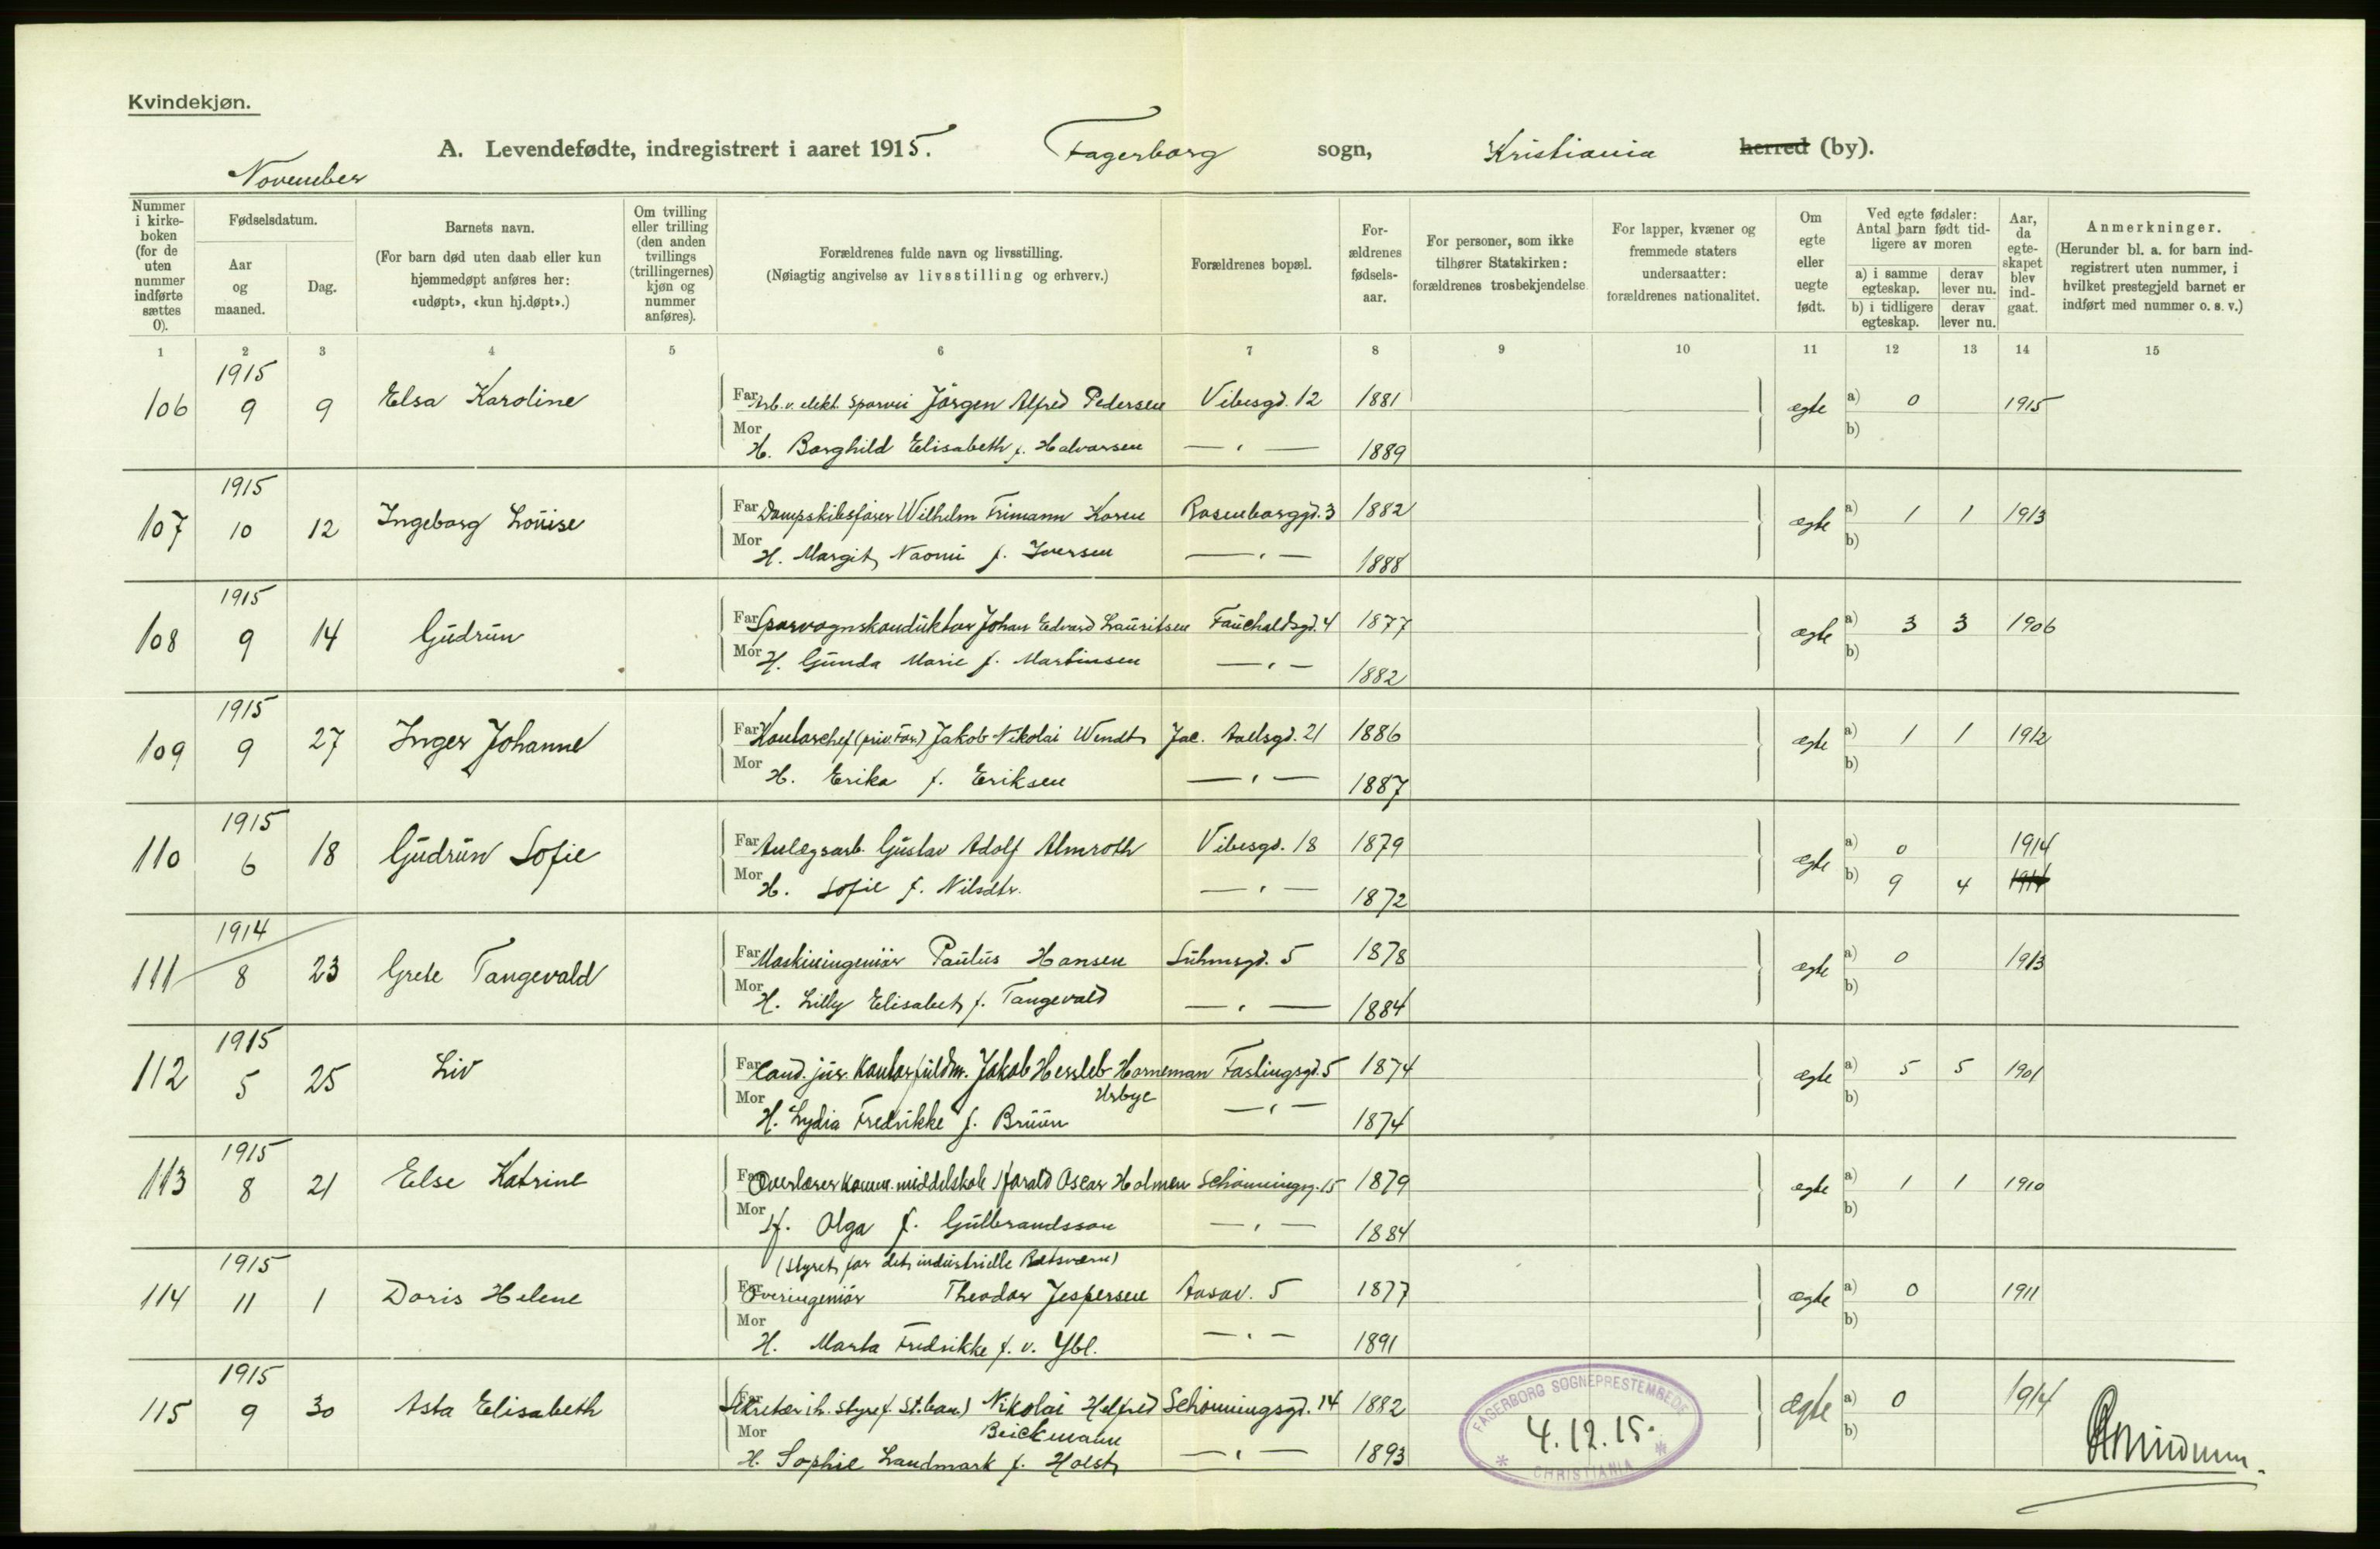 Kvindekjøn.
A. Levendefødte, indregistrert i aaret 1915. Fagerborg sogn, Kristiania herred (by).
November
Nummer i kirkeboken (for de uten nummer indførte sættes 0).
Fødselsdatum.
Aar og maaned.
Dag.
Barnets navn.
(For barn død uten daab eller kun hjemmedøpt anføres her: «udøpt», «kun hj.døpt».)
Om tvilling eller trilling (den anden tvillings (trillingernes) kjøn og nummer anføres).
Forældrenes fulde navn og livsstilling.
(Nøiagtig angivelse av livsstilling og erhverv.)
Forældrenes bopæl.
Forældrenes fødselsaar.
For personer, som ikke tilhører Statskirken: forældrenes trosbekjendelse
For lapper, kvæner og fremmede staters undersaatter: forældrenes nationalitet.
Om egte eller uegte født.
Ved egte fødsler: Antal barn født tidligere av moren
a) i samme egteskap.
derav lever nu.
b) i tidligere egteskap.
derav lever nu.
Aar, da egteskapet blev indgaat.
Anmerkninger.
(Herunder bl. a. for barn indregistrert uten nummer, i hvilket prestegjeld barnet er indført med nummer o. s. v.)
1 2 3 4 5 6 7 8 9 10 11 12 13 14 15
1915
106 9 9 Elsa Karoline Far Arb. v. elekt. Sporvei Jörgen Alfred Pedersen Vibesgd. 12 1881 ægte a) 0 1915
Mor H. Borghild Elisabeth f. Halvorsen — " — 1889 b)
1915
107 10 12 Ingeborg Louise Far Dampskibsfører Wilhelm Frimann Koren Rosenborggd. 3 1882 ægte a) 1 1 1913
Mor H. Margit Naomi f. Iversen — " — 1888 b)
1915
108 9 14 Gudrun Far Sporvognskonduktør Johan Edvard Lauritsen Fauchaldsgd. 4 1877 ægte a) 3 3 1906
Mor H. Gunda Marie f. Martinsen — " — 1882 b)
1915
109 9 27 Inger Johanne Far Kontorchef (priv. for.) Jakob Nikolai Wendt Jac. Aallsgd. 21 1886 ægte a) 1 1 1912
Mor H. Erika f. Eriksen — " — 1887 b)
1915
110 6 18 Gudrun Sofie Far Anlægsarb. Gustav Adolf Almroth Vibesgd. 18 1879 ægte a) 0 1914
Mor H. Sofie f. Nilsdtr. — " — 1872 b) 9 4 1914
1914
111 8 23 Grete Tangevald Far Maskiningeniör Paulus Hansen Suhmsgd. 5 1878 ægte a) 0 1913
Mor H. Lilly Elisabet f. Tangevald — " — 1884 b)
1915
112 5 25 Liv Far Cand. jur. Kontorfuldm. Jakob Hersleb Horneman Fastingsgd. 5 1874 ægte a) 5 5 1901
Urbye
Mor H. Lydia Fredrikke f. Bruun — " — 1874 b)
1915
113 8 21 Else Katrine Far Overlærer komm. middelskole Harald Oscar Holmen Schönningsg. 15 1879 ægte a) 1 1 1910
Mor H. Olga f. Gulbrandsson — " — 1884 b)
1915 (styret for det industrielle Retsværn)
114 11 1 Doris Helene Far Overingeniör Theodor Jespersen Aasav. 5 1877 ægte a) 0 1911
Mor H. Marta Fredrikke f. v. Ybl. — " — 1891 b)
1915
115 9 30 Asta Elisabeth Far Sekretær (h. styre f. St.ban.) Nikolai Helfred Schönningsgd. 14 1882 ægte a) 0 1914
Beickmann
Mor H. Sophie Landmark f. Holst — " — 1893 b)
FAGERBORG SOGNEPRESTEMBEDE
4.12.15.
* CHRISTIANIA *